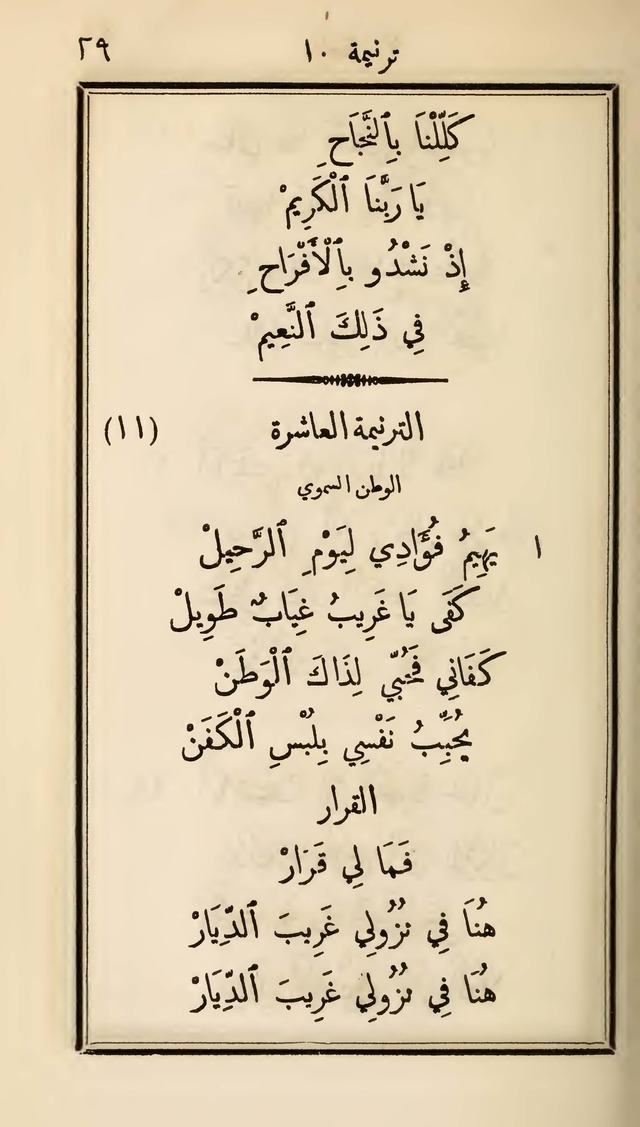 ترنيمة ١٠ ٢٩
كَلِّلْنَا بِٱلنَّجَاحِ
يَا رَبَّنَا ٱلْكَرِيمْ
إِذْ نَشْدُو بِٱلْأَفْرَاحِ
فِي ذَلِكَ ٱلنَّعِيمْ
الترنيمة العاشرة (١١)
الوطن السموي
١ يَهِيمُ فُؤَادِي لِيَوْمِ ٱلرَّحِيلْ
كَفَى يَا غَرِيبُ غِيَابٌ طَوِيلْ
كَفَانِي فَحُبِّي لِذَاكَ ٱلْوَطَنْ
يُحَبِّبُ نَفْسِي بِلُبْسِ ٱلْكَفَنْ
القرار
فَمَا لِي قَرَارْ
هُنَا فِي نُزُولِي غَرِيبَ ٱلدِّيَارْ
هُنَا فِي نُزُولِي غَرِيبَ ٱلدِّيَارْ